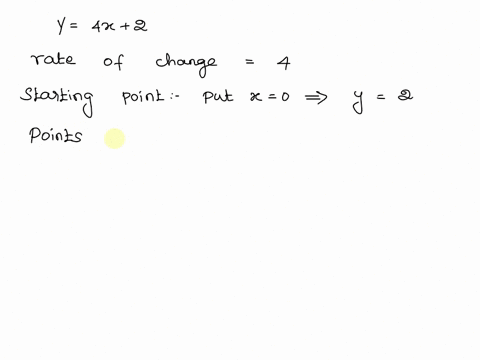 Y = 4x + 2
rate of change = 4
Starting point:- put x = 0 ⟹ y = 2
Points